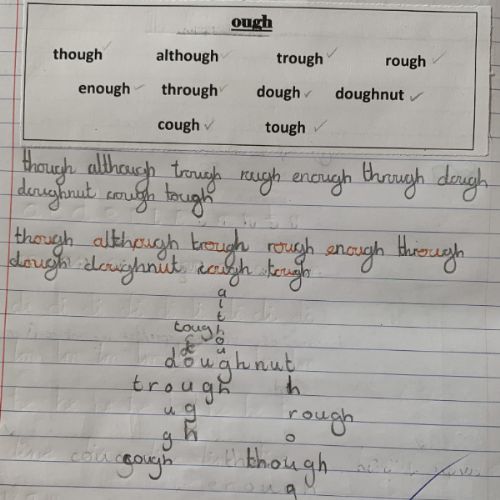 ough
though although trough rough
enough through dough doughnut
cough tough
though although trough rough enough through dough
doughnut cough tough
though although trough rough enough through
dough doughnut cough tough
a
l
t
tough
o
u
doughnut
trough h
u g rough
g h o
cough though
g